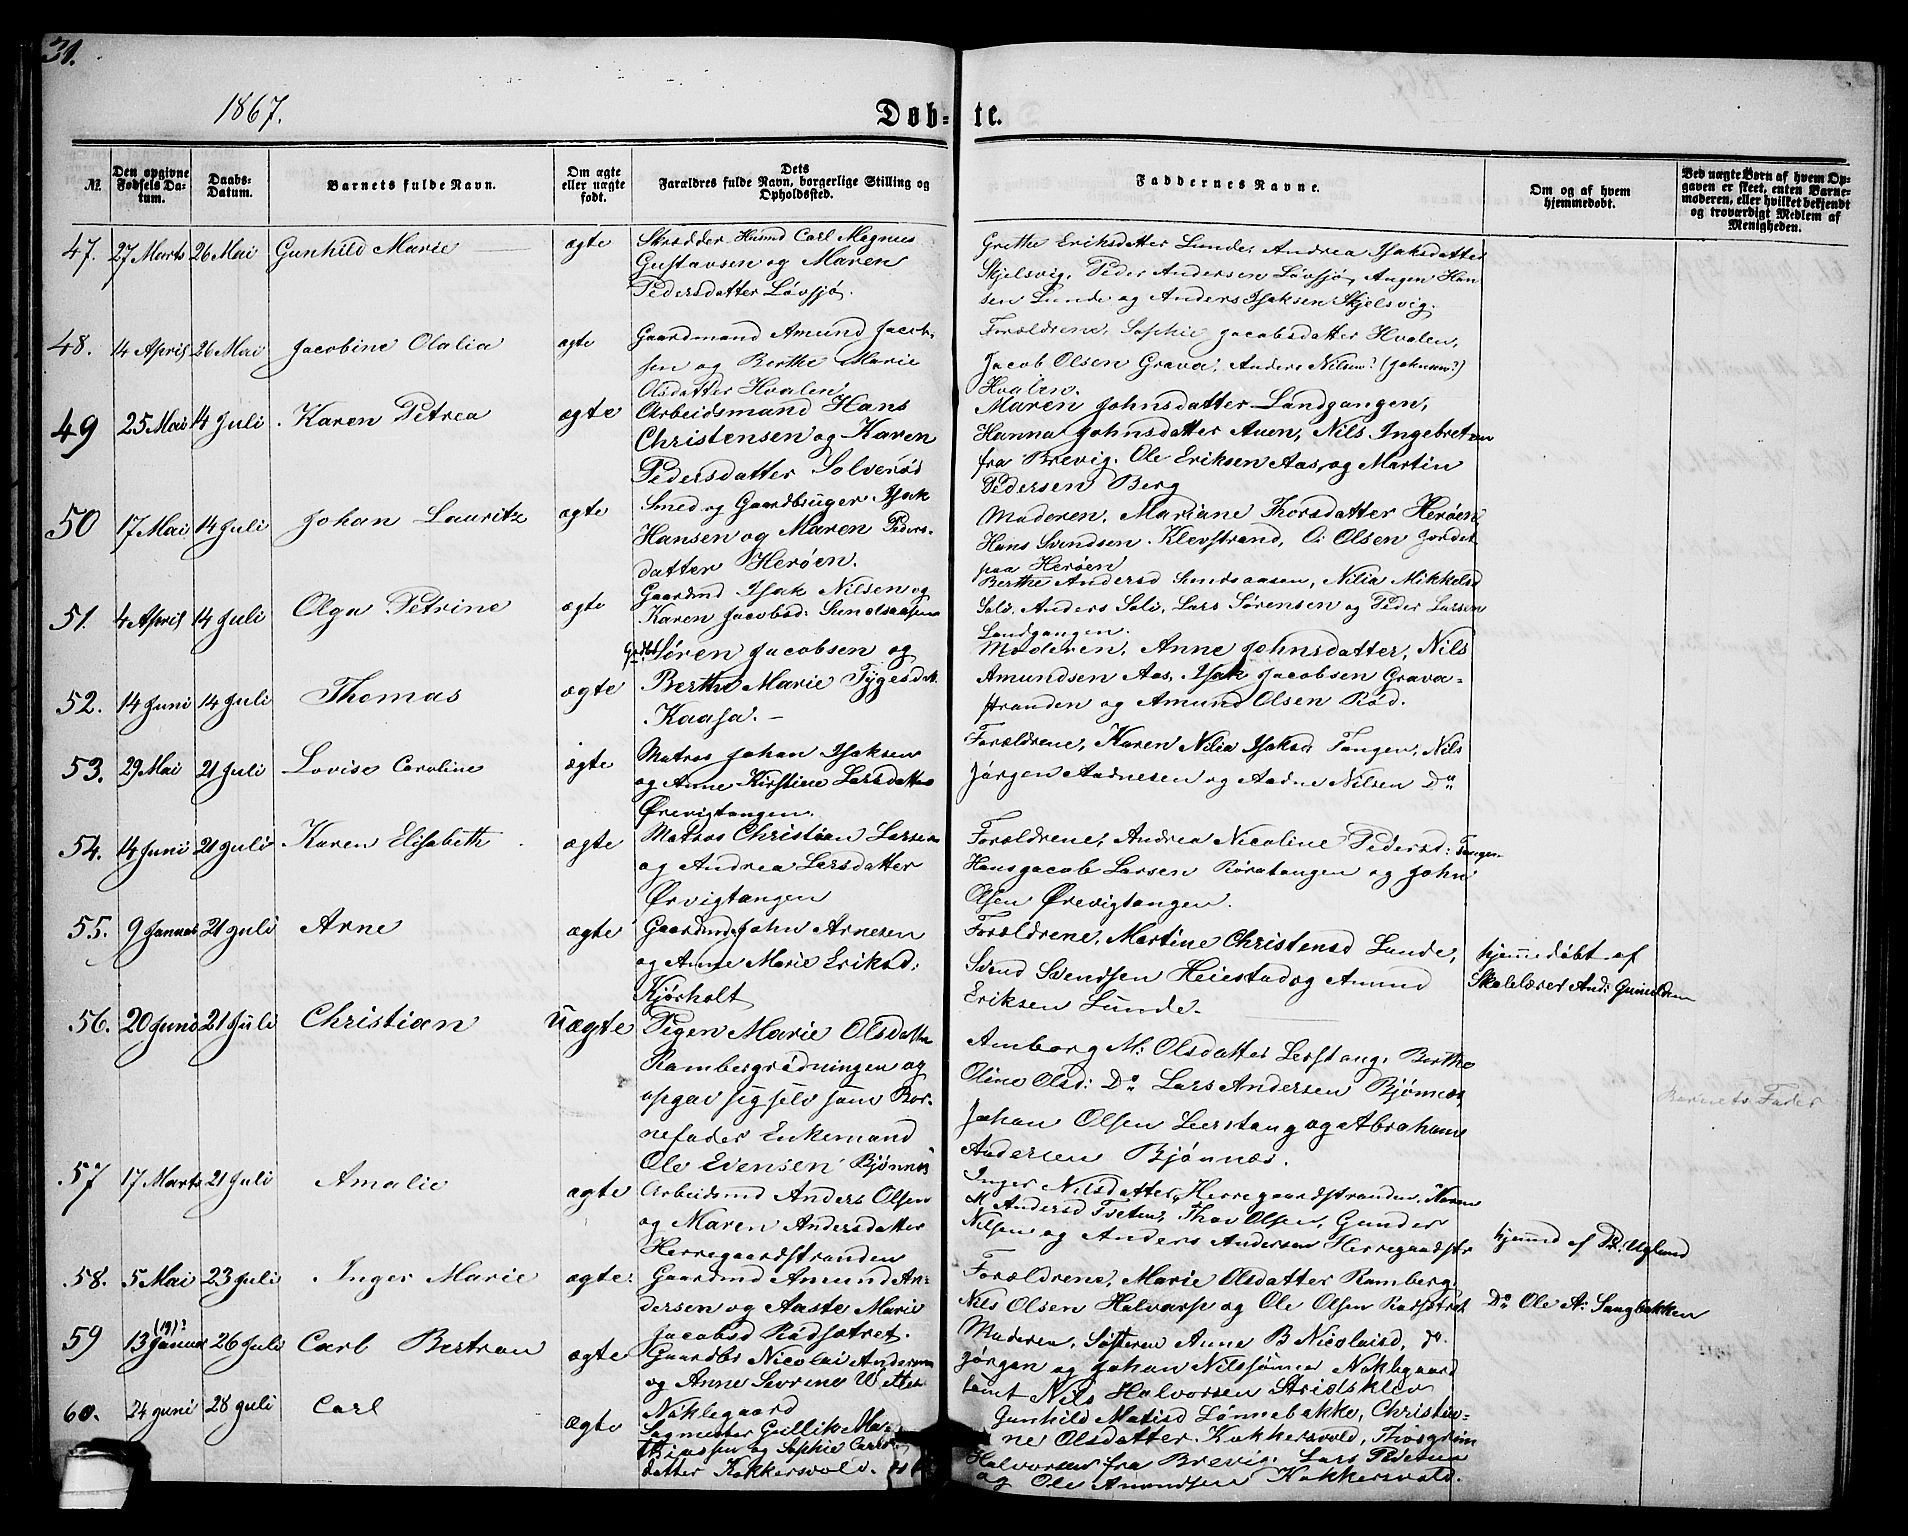 31.
1867.
Døb-te.
№
Den opgivne Fødsels Datum.
Daabs-Datum.
Barnets fulde Navn.
Om ægte eller uægte født.
Dets Forældres fulde Navn, borgerlige Stilling og Opholdssted.
Faddernes Navne.
Om og af hvem hjemmedøbt.
Ved uægte Børn af hvem Opgaven er skeet, enten Barnemoderen, eller hvilket bekjendt og troværdigt Medlem af Menigheden.
47. 27 Marts 26 Mai Gunhild Marie ægte
Skrædder Husmd Carl Magnus
Gustavsen og Maren
Pedersdatter Løvsjø.
Grethe Eriksdatter Lunde, Andrea Isaksdatter
Skjelsvig, Peder Andersen Løvsjø, Hansen Lunde og Anders Isaksen Skjelsvig.
48. 14 April 26 Mai Jacobine Olalia ægte
Gaardmand Amund Jacobsen og Berthe Marie
Olsdatter Hvalen.
Forældrene, Sophie Jacobsdatter Hvalen,
Jacob Olsen Grava, Anders Nilsen? (Johnsen?)
Hvalen.
49 25 Mai 14 Juli Karen Petrea ægte
Arbeidsmand Hans
Christensen og Karen
Pedersdatter Solverød
Maren Johnsdatter Landgangen,
Hanna Johnsdatter Auen, Nils Ingebretsen
fra Brevig, Ole Eriksen Aas, og Martin
Pedersen Berg
50 17 Mai 14 Juli Johan Lauritz ægte
Smed og Gaardbruger Isak
Hansen og Maren Peders-
datter Herøen.
Moderen, Mariane Thorsdatter Herøen,
Hans Svendsen Klevstrand, O: Olsen Jordet
paa Herøen
51. 4 April 14 Juli Olga Petrine ægte
Gaardmd Isak Nilsen og
Karen Jacobsd: Sundsaasen
Berthe Andersd Sundsaasen, Nilia Mikkelsd
Solv, Anders Solv, Lars Sørensen og Peder Larsen
Landgangen.
52. 14 Juni 14 Juli Thomas ægte
Grdbr Søren Jacobsen og
Berthe Marie Tygesdt.
Kaasa. —
Moderen, Anne Johnsdatter, Nils
Amundsen Aas, Isak Jacobsen Grava-
stranden og Amund Olsen Rød.
53. 29 Mai 21 Juli Lovise Caroline ægte
Matros Johan Isaksen
og Anne Kirstine Larsdatter
Ørevigtangen.
Forældrene, Karen Nilia Isaksd Tangen, Nils
Jørgen Aadnesen og Aadne Nilsen Do
54. 14 Juni 21 Juli Karen Elisabeth ægte
Matros Christian Larsen
og Andrea Larsdatter
Ørvigtangen
Forældrene, Andrea Nicoline Pedersd: Tangen
Hans Jacob Larsen Røratangen og John
Olsen Ørevigtangen.
55. 9 Januar 21 Juli Arne ægte
Gaardmd John Arnesen
og Anne Marie Eriksd:
Kjørholt
Forældrene, Martine Christensd Lunde,
Svend Svendsen Heiestad og Amund
Eriksen Lunde.
hjemmedøbt af
Skolelærer And:
56. 20 Juni 21 Juli Christian Uægte
Pigen Marie Olsdatter
Rambergrødningen og
opgav sig selv som Bar-
nefader Enkemand
Ole Evensen Bjønnes
Amborg M: Olsdatter Lerstang, Berthe
Oline Olsd: Do Lars Andersen Bjønnes,
Johan Olsen Leerstang og Abraham
Andersen Bjønnæs.
Barnets Fader
57 17 Marts 21 Juli Amalie ægte
Arbeidsmd Anders Olsen
og Maren Andersdatter
Herregaardstranden
Inger Nilsdatter Herregaardstranden, Karen
M. Andersd Tveten, Thor Olsen, Gunder
Nilsen og Anders Andersen Herregaardstr
hjemmd af Pr: Ugland
58. 5 Mai 23 Juli Inger Marie ægte
Gaardmd Amund An-
dersen og Aaste Marie
Jacobsd Rødsætret.
Forældrene, Marie Olsdatter Ramberg,
Nils Olsen Halvarp og Ole Olsen Rødsætret
Do Ole A: Langbakken
59 13 (19)? Januar 26 Juli Carl Bertran ægte
Gaardbr Nicolai Andersen
og Anne Severine Vetter
Nøklegaard
Moderen, Søsteren Anne B Nicolaisd, do.
Jørgen og Johan Nilssønner Nøklegaard
samt Nils Halvorsen Stridsklev
60. 24 Juni 28 Juli Carl ægte
Sagmester Gullik Ma-
thiassen og Sophie Carls-
datter Kokkersvold.
Gunhild Matisd Lønnebakke, Christia-
ne Olsdatter Kokkersvold, Thorgrim
Halvorsen fra Brevig, Lars Pedersen
og Ole Amundsen Kokkersvold.